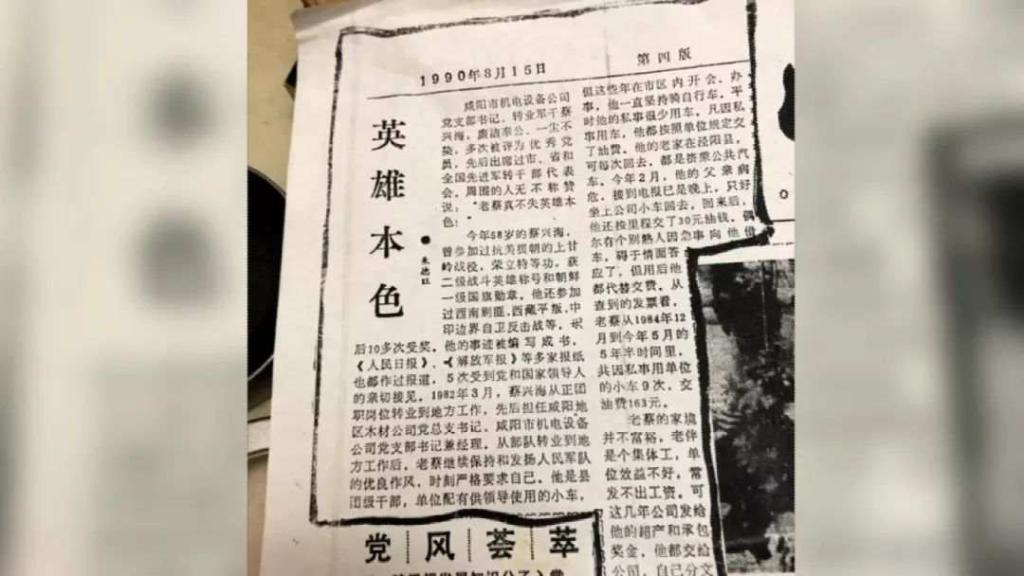 1990年8月15日
第四版
英雄本色
●朱德虹
咸阳市机电设备公司
党支部书记、转业军干蔡
兴海,廉洁奉公、一尘不
染,多次被评为优秀党
员,先后出席过市、省和
全国先进军转干部代表
会,周围的人无不称赞
说,“老蔡真不失英雄本
色!”
今年58岁的蔡兴海,
曾参加过抗美援朝的上甘
岭战役,荣立特等功,获
二级战斗英雄称号和朝鲜
一级国旗勋章。他还参加
过西南剿匪、西藏平叛、中
印边界自卫反击战等,
后10多次受奖,他的事迹被编写成书,
《人民日报》、《解放军报》等多家报纸
也都作过报道,5次受到党和国家领导人
的亲切接见,1982年3月,蔡兴海从正团
职岗位转业到地方工作,先后担任咸阳地
区木材公司党总支书记、咸阳市机电设备
公司党支部书记兼经理,从部队转业到地
方工作后,老蔡继续保持和发扬人民军队
的优良作风,时刻严格要求自己。他是县
团级干部,单位配有供领导使用的小车,
但这些年在市区内开会、办
事,他一直坚持骑自行车,平
时他的私事很少用车,凡因私
事用车,他都按照单位规定交
了油费。他的老家在泾阳县,
可每次回去,都是搭乘公共汽
车。今年2月,他的父亲病
危,接到电报已是晚上,只好
坐上公司小车回去,回来后,
他还按里程交了30元油钱,偶
尔有个别熟人因急事向他借
车,碍于情面答
应了,但用后他
都代替交费,从
查到的发票看,
老蔡从1984年12
月到今年5月的
5年半时间里,
共因私事用单位
的小车9次,交
油费163元。
老蔡的家境
并不富裕,老伴
是个集体工,单
位效益不好,常
发不出工资,可
这几年公司发给
他的超产和承包
奖金,他都交给
公司,自己分文
党风荟萃